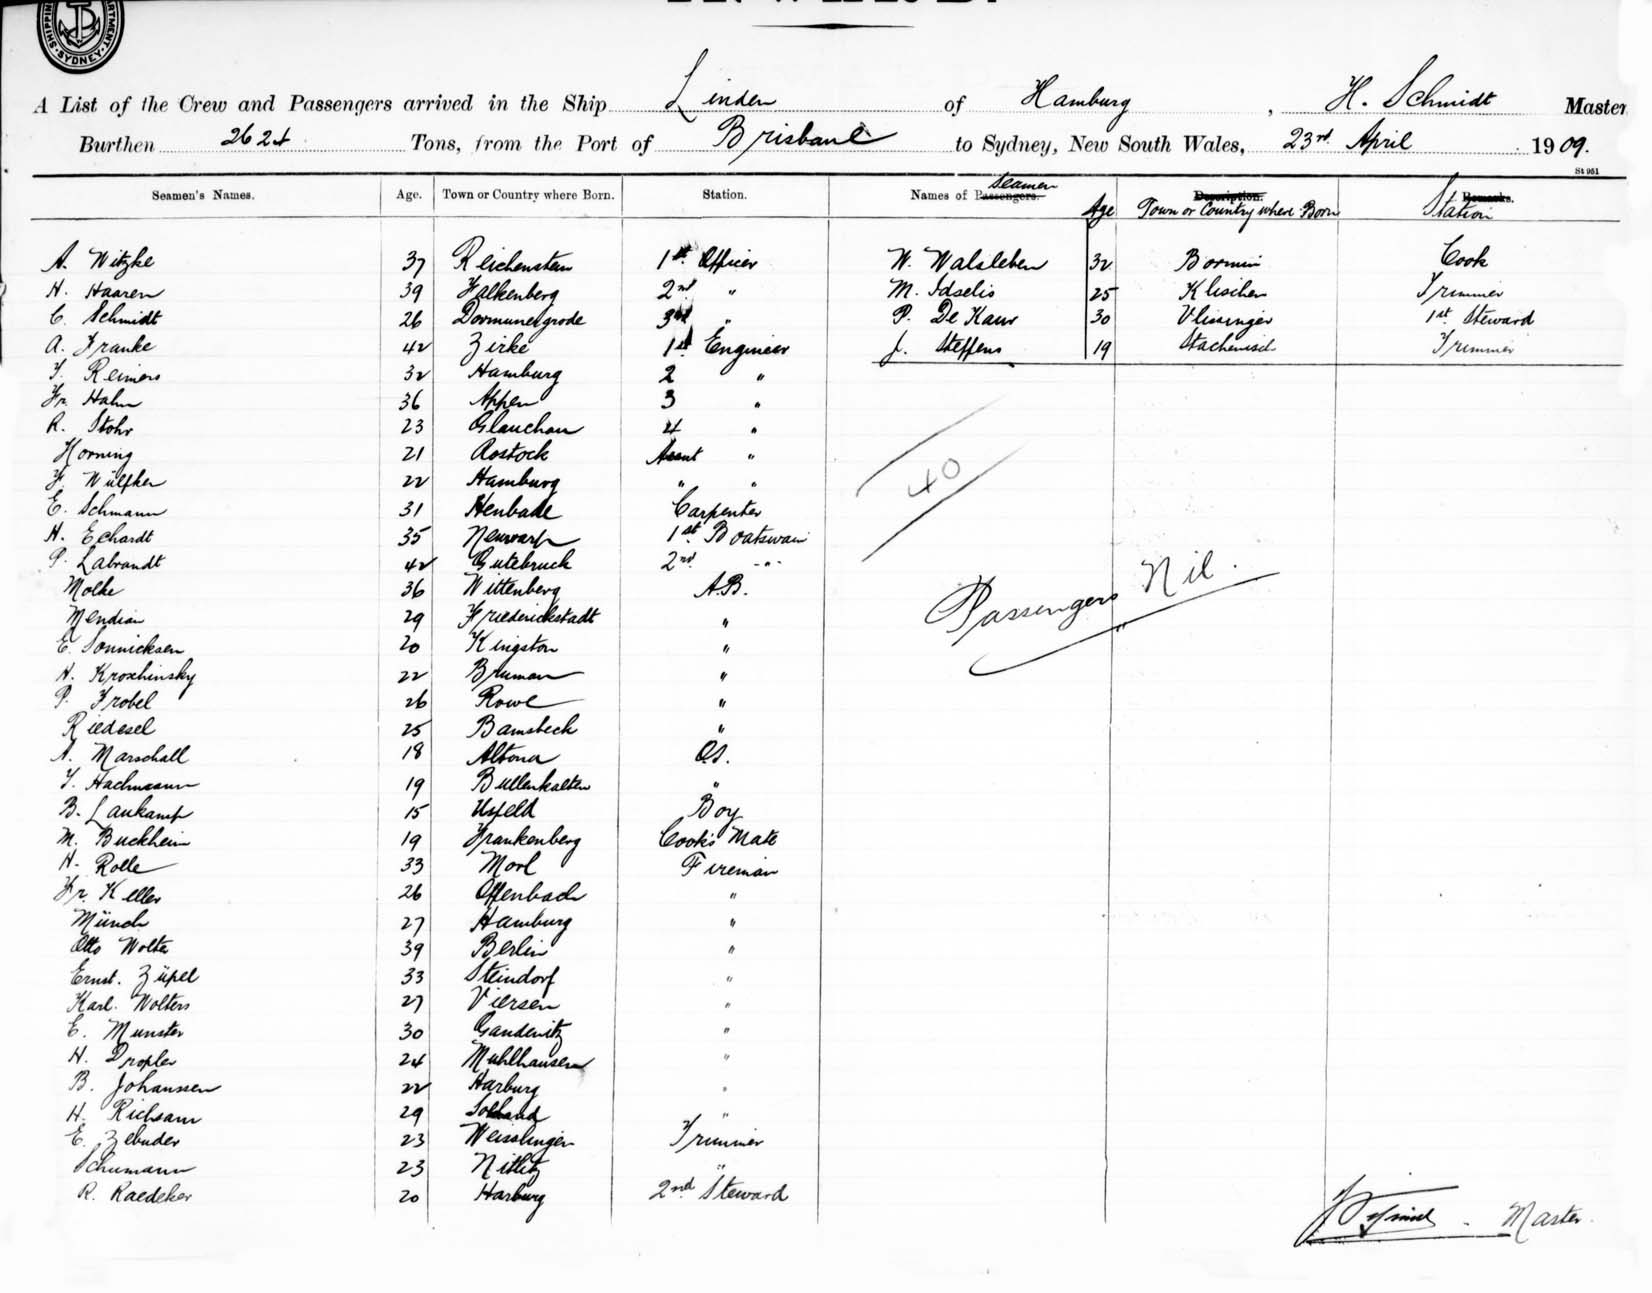 SYDNEY
A List of the Crew and Passengers arrived in the Ship Linden of Hamburg, H. Schmidt Master
Burthen 2624 Tons, from the Port of Brisbane to Sydney, New South Wales, 23rd April 1909.
St 951
Seamen's Names. Age. Town or Country where Born. Station. Names of Passengers. Seamen Age Description. Town or Country where Born Remarks. Station
A. Witzke 37 Reichenstein 1st Officer W. Walsleben 32 Cook
H. Haaren 39 Falkenberg 2nd " M. Idselis 25 Klischen Trimmer
C. Schmidt 26 3rd " P. De Kauw 30 Vlissinger 1st Steward
A. Franke 42 Zirke 1st Engineer J. Steffens 19 Trimmer
F. Reimers 32 Hamburg 2 "
Fr. Hahn 36 Appen 3 "
R. Stohr 23 Glauchau 4 "
Horning 21 Rostock Assnt "
F. Wülfken 22 Hamburg " "
E. Schmann 31 Carpenter
H. Echardt 35 Neuwarp 1st Boatswain
P. Labrandt 42 Gutebruck 2nd -"-
Molke 36 Wittenberg A.B.
Mendian 29 Friederickstadt "
E. Sonnicksen 20 Kingston "
H. Kroschinsky 22 "
P. Frobel 26 Rowe "
Riedesel 25 Bamsbeck "
A. Marschall 18 Altona O.S.
F. Hachmann 19 Bullenkalten "
B. Laukamp 15 Usfeld Boy
M. Buckheim 19 Frankenberg Cook's Mate
H. Rolle 33 Morl Fireman
Fr. Keller 26 Offenbach "
Münch 27 Hamburg "
Otto Wolte 39 Berlin "
Ernst. Züpel 33 Steindorf "
Karl. Wolters 27 Viersen "
E. Munster 30 Gandenitz "
H. Dropler 24 Muhlhausen "
B. Johanssen 22 Harburg "
H. Richsam 29 "
E. Zebuder 23 Weisslingen Trimmer
Schumann 23 Nitlitz "
R. Raedeker 20 Harburg 2nd Steward
40
Passengers Nil.
Master